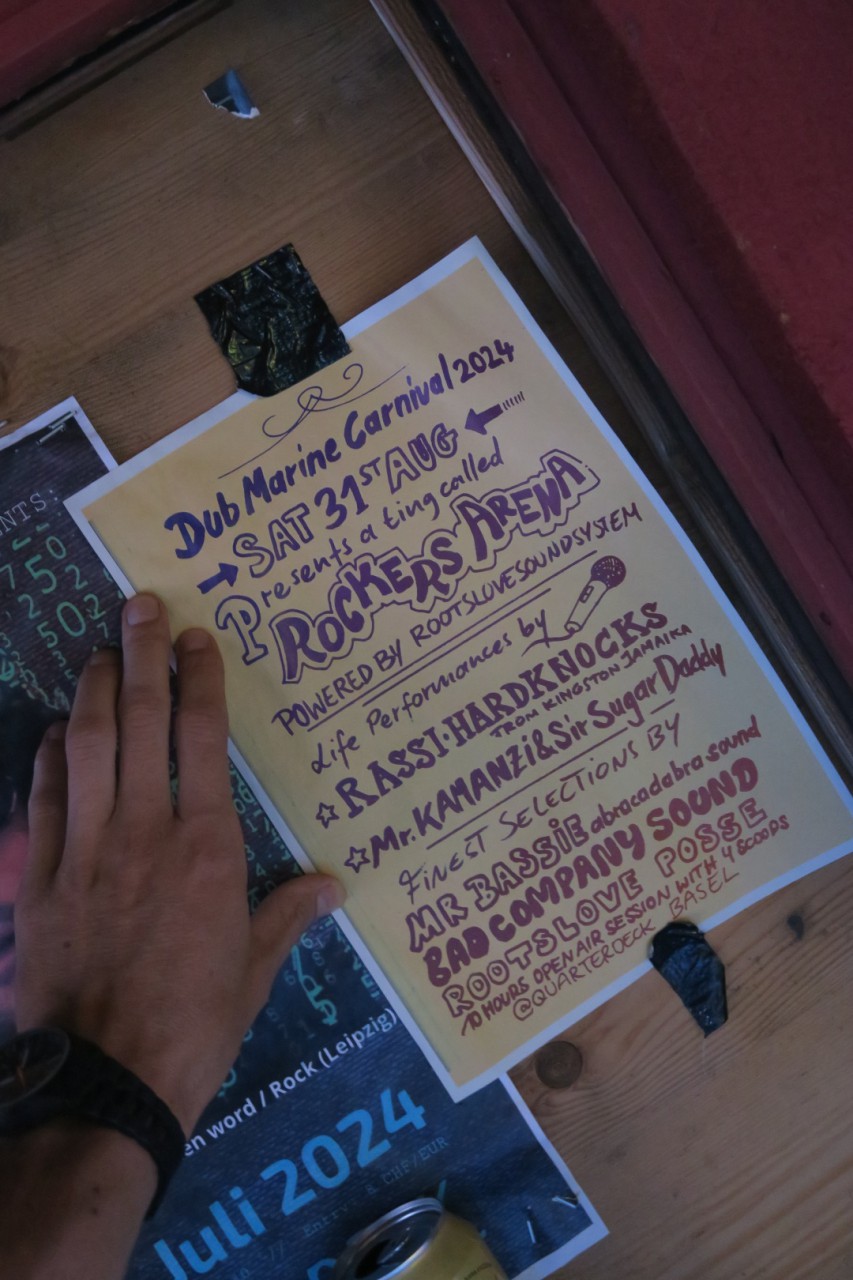 Dub Marine Carnival 2024
SAT 31ST AUG
Presents a ting called
ROCKERS ARENA
POWERED BY ROOTSLOVESOUNDSYSTEM
Life Performances by
RASSI·HARDKNOCKS
FROM KINGSTON JAMAIKA
Mr. KAMANZi & Sir Sugar Daddy
FINEST SELECTIONS BY
MR BASSiE abracadabra sound
BAD COMPANY SOUND
ROOTSLOVE POSSE
10 HOURS OPEN AIR SESSION WITH 4 SCOOPS
@QUARTERDECK BASEL
NTS:
en word / Rock (Leipzig)
Juli 2024
Entry: & CHF/EUR